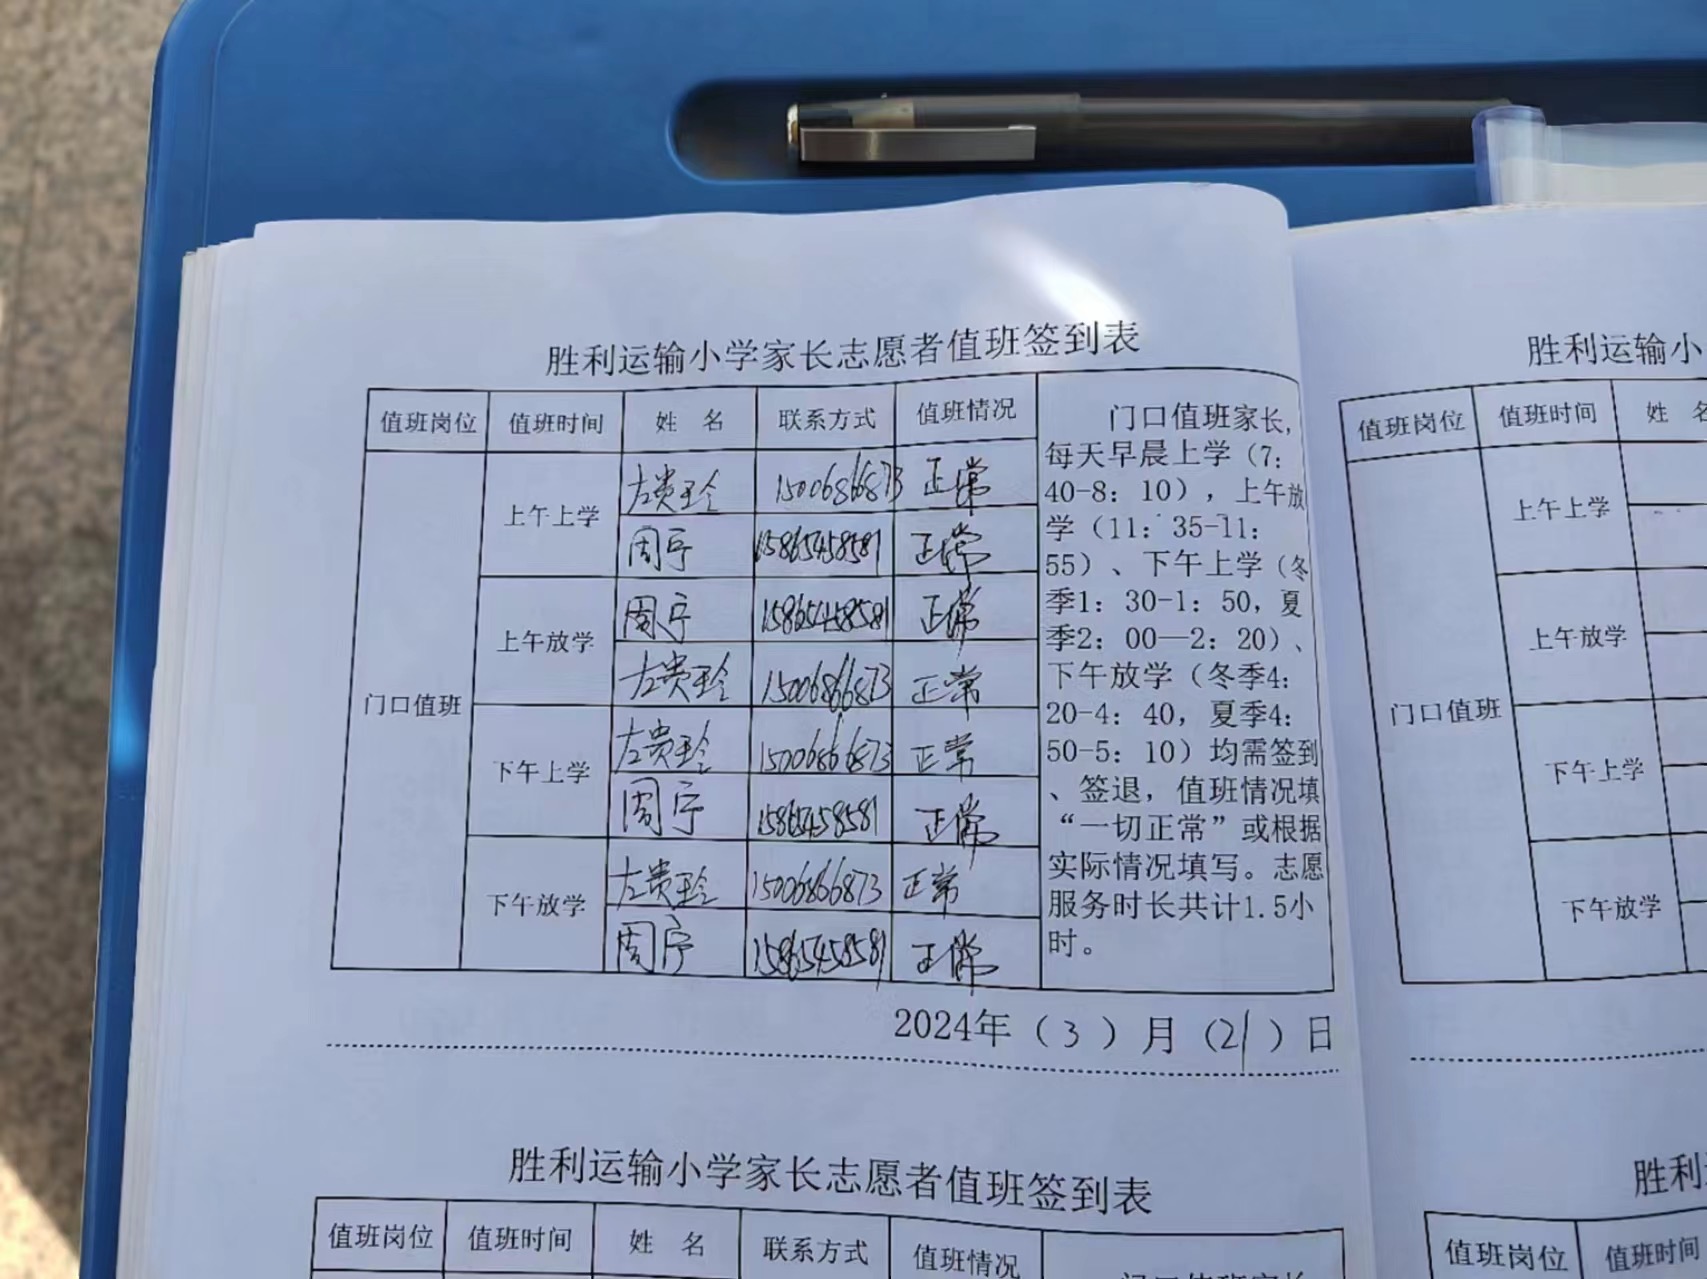 胜利运输小学家长志愿者值班签到表
值班岗位 值班时间 姓 名 联系方式 值班情况
门口值班
上午上学
左贵玲 15006866873 正常
周宇 15865458581 正常
上午放学
周宇 15865458581 正常
左贵玲 15006866873 正常
下午上学
左贵玲 15006866873 正常
周宇 15865458581 正常
下午放学
左贵玲 15006866873 正常
周宇 15865458581 正常
门口值班家长,
每天早晨上学（7:
40-8: 10），上午放
学（11: 35-11:
55）、下午上学（冬
季1: 30-1: 50, 夏
季2: 00—2: 20）、
下午放学（冬季4:
20-4: 40, 夏季4:
50-5: 10）均需签到
、签退，值班情况填
“一切正常”或根据
实际情况填写。志愿
服务时长共计1.5小
时。
2024年（3）月（21）日
胜利运输小学家长志愿者值班签到表
值班岗位 值班时间 姓 名 联系方式 值班情况
胜利运输小
值班岗位 值班时间 姓
门口值班
上午上学
上午放学
下午上学
下午放学
胜利
值班岗位 值班时间